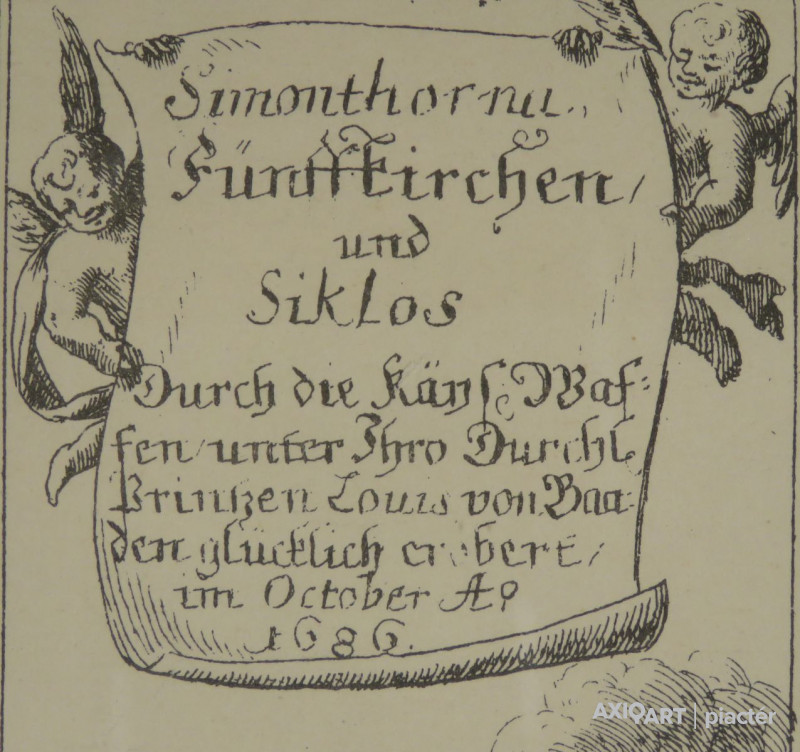 Simonthorna,
Fünffkirchen/
und
Siklos
Durch die Käyſ. Waf-
fen/unter Ihro Durchl.
Printzen Louis von Baa-
den glücklich erobert/
im October Aº
1686.
AXIOART | piactér